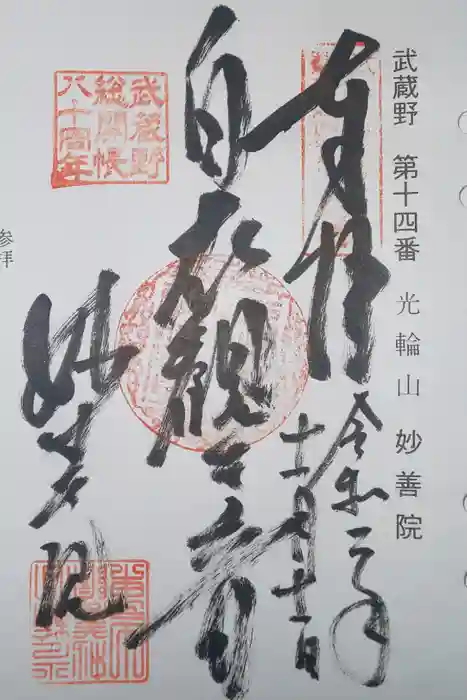 武蔵野 第十四番 光輪山 妙善院
奉拝
令和二年
十一月十一日
白衣観世音
妙善院
武蔵野
総開帳
八十周年
参拝